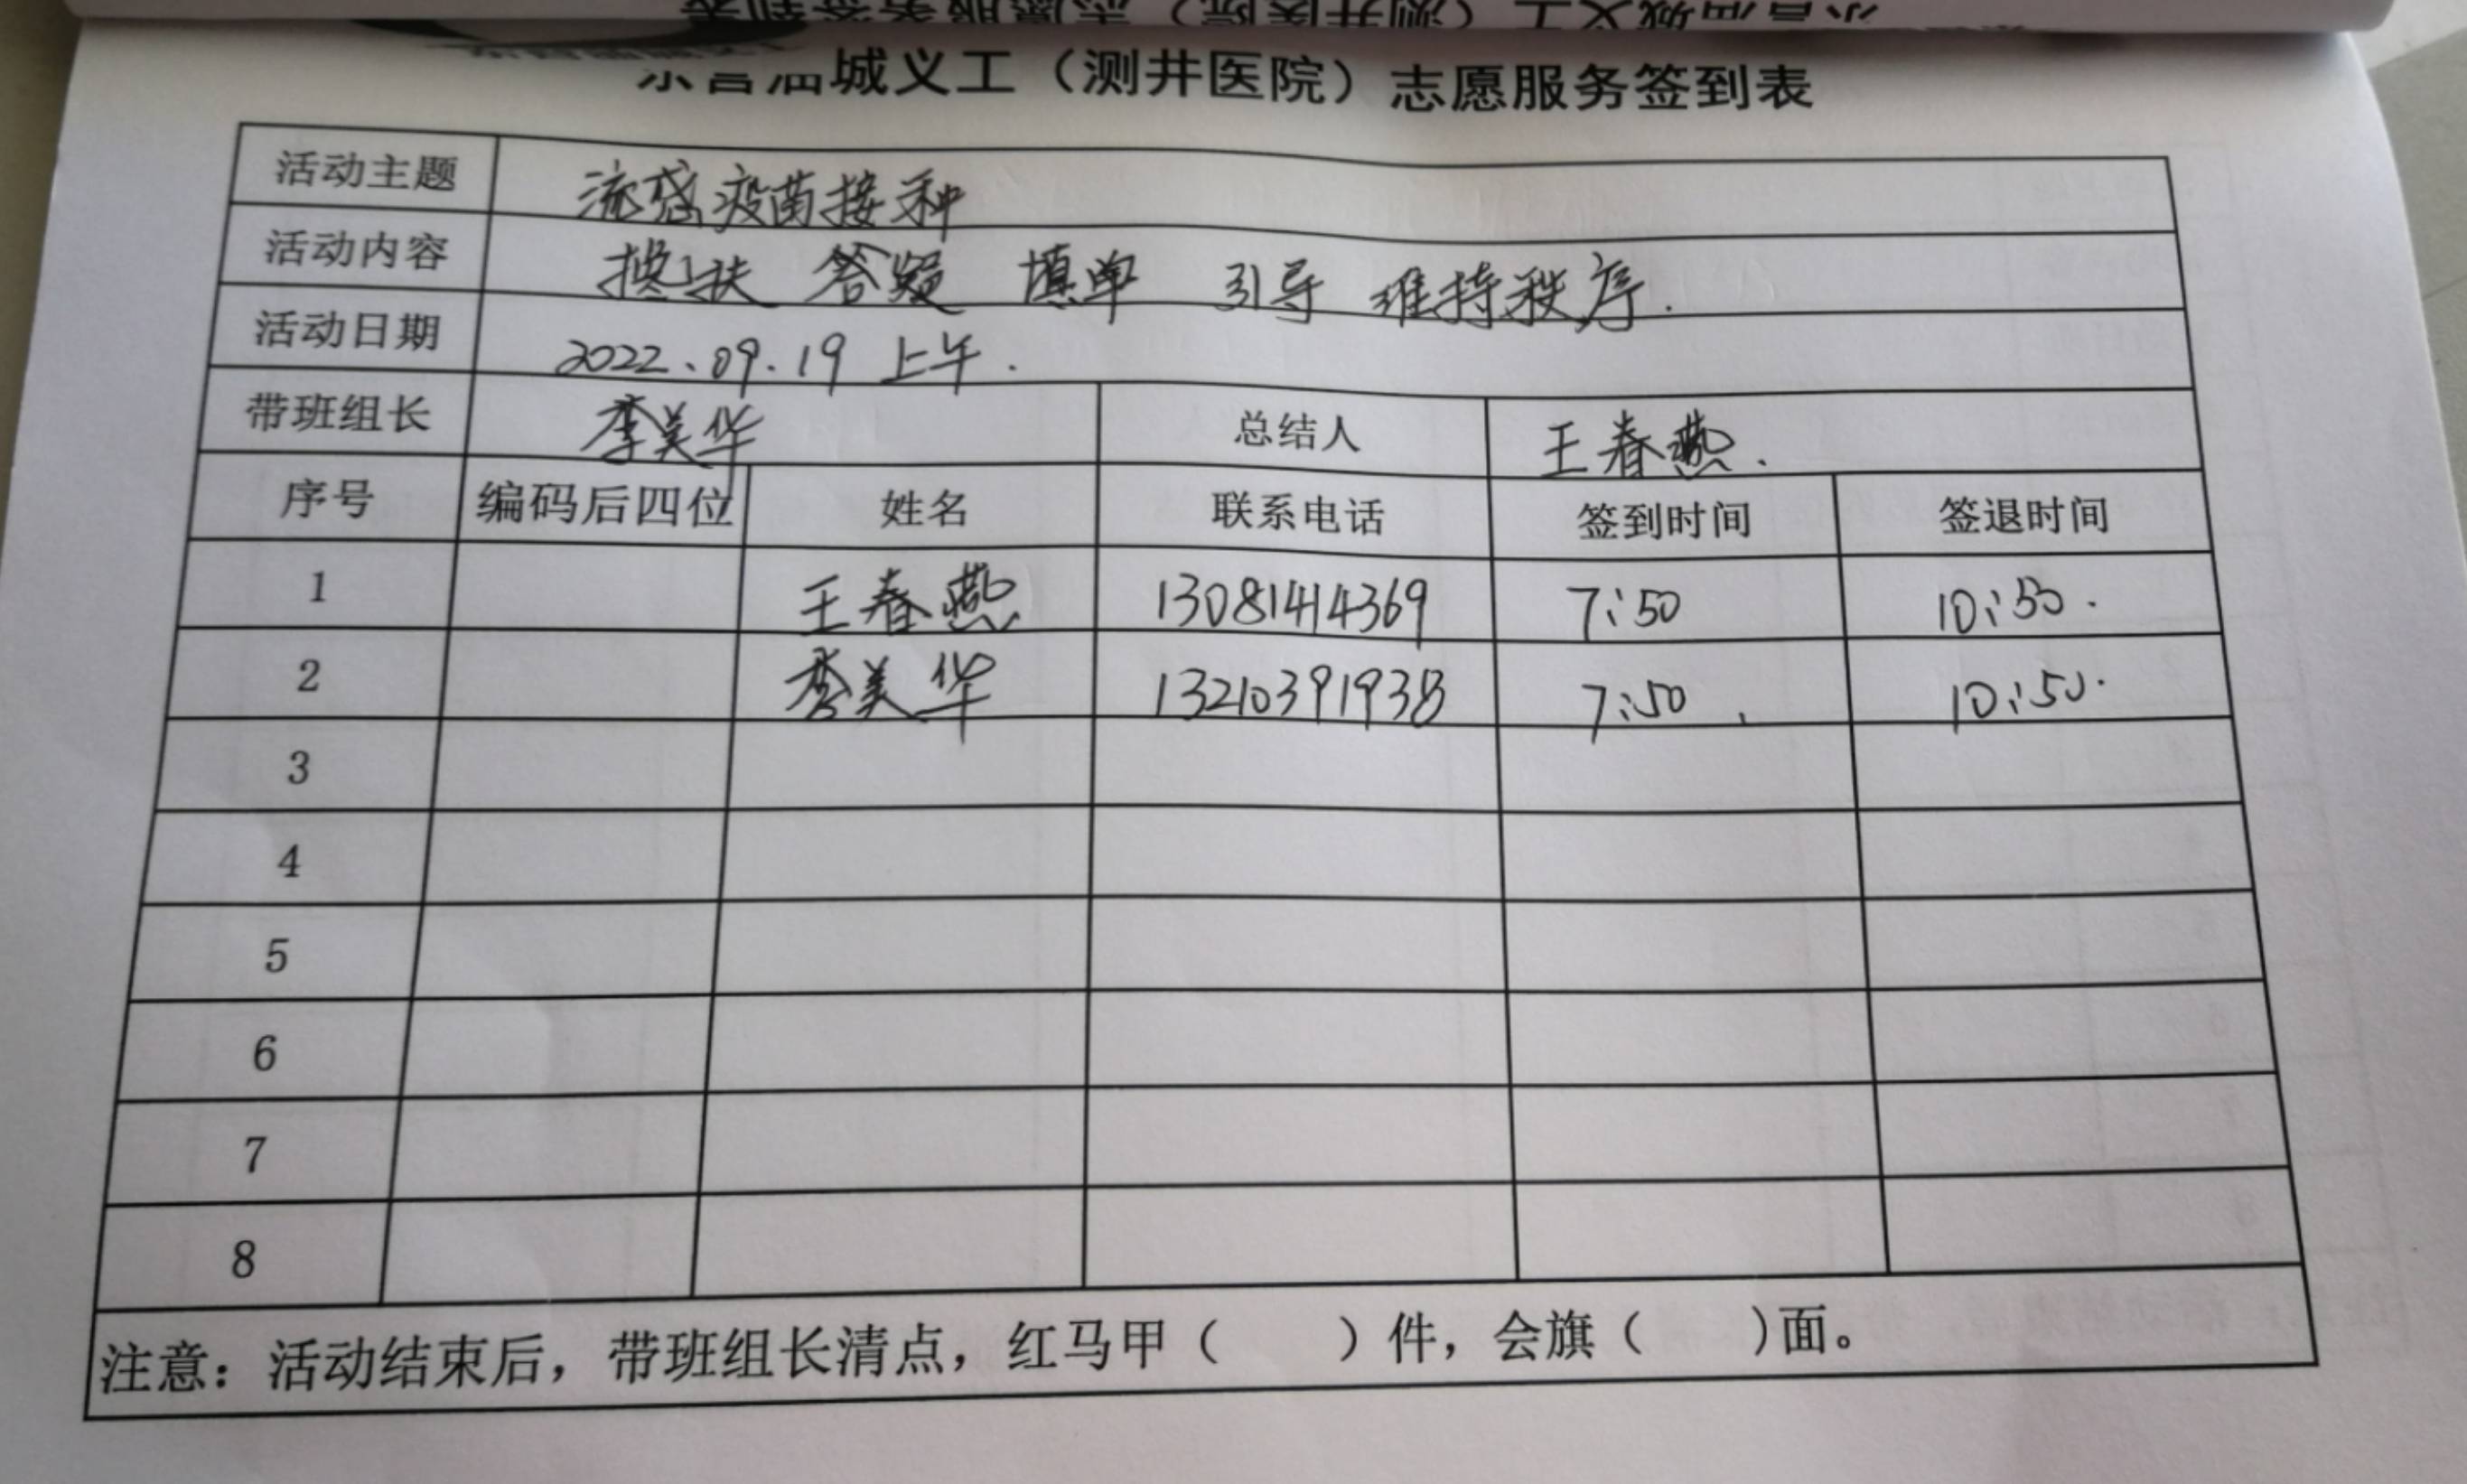 东营油城义工（测井医院）志愿服务签到表
活动主题 流感疫苗接种
活动内容 搀扶 答疑 填单 引导 维持秩序.
活动日期 2022.09.19 上午.
带班组长 李美华 总结人 王春燕.
序号 编码后四位 姓名 联系电话 签到时间 签退时间
1 王春燕 13081414369 7:50 10:50.
2 李美华 13210391938 7:50 10:50.
3
4
5
6
7
8
注意：活动结束后，带班组长清点，红马甲（ ）件，会旗（ )面。